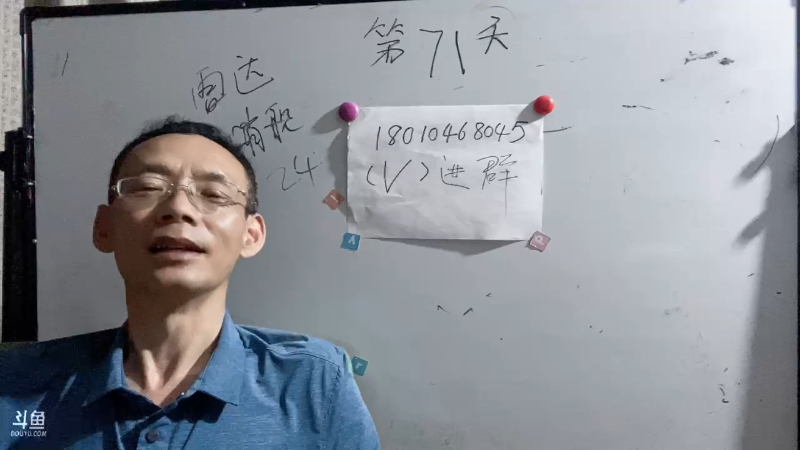 第71天
雷达
哨舰
24
18010468045
(V)进群
斗鱼
DOUYU.COM